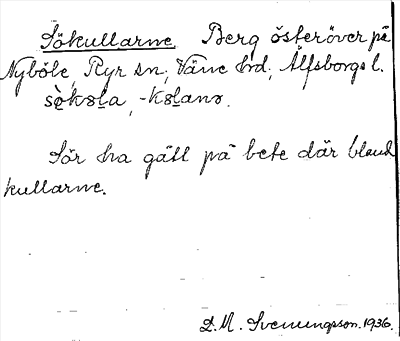 Sökullarne. Berg österöver på
Nyböle, Ryr sn, Väne hd, Älfsborgs l.
sèkɷla, -kɷlanɷ.
Sör ha gått på bete där bland
kullarne.
D.M. Svenungsson. 1936.